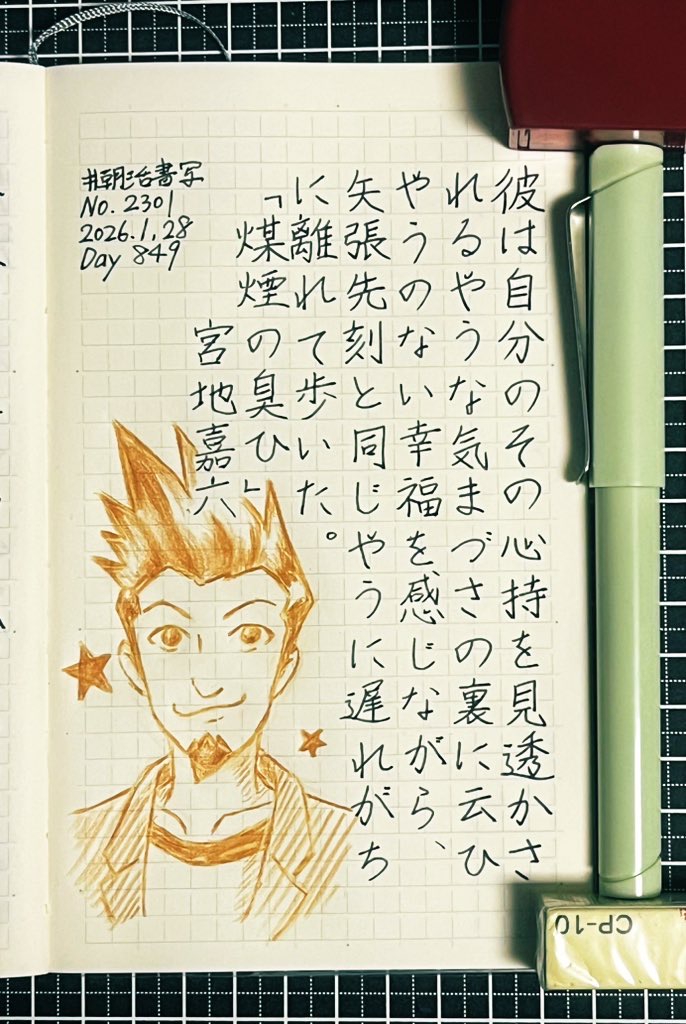 彼は自分のその心持を見透かさ
れるやうな気まづさの裏に云ひ
やうのない幸福を感じながら、
矢張先刻と同じやうに遅れがち
に離れて歩いた。
「煤煙の臭ひ」
宮地嘉六
#朝活書写
No. 2301
2026.1.28
Day 849
CP-10